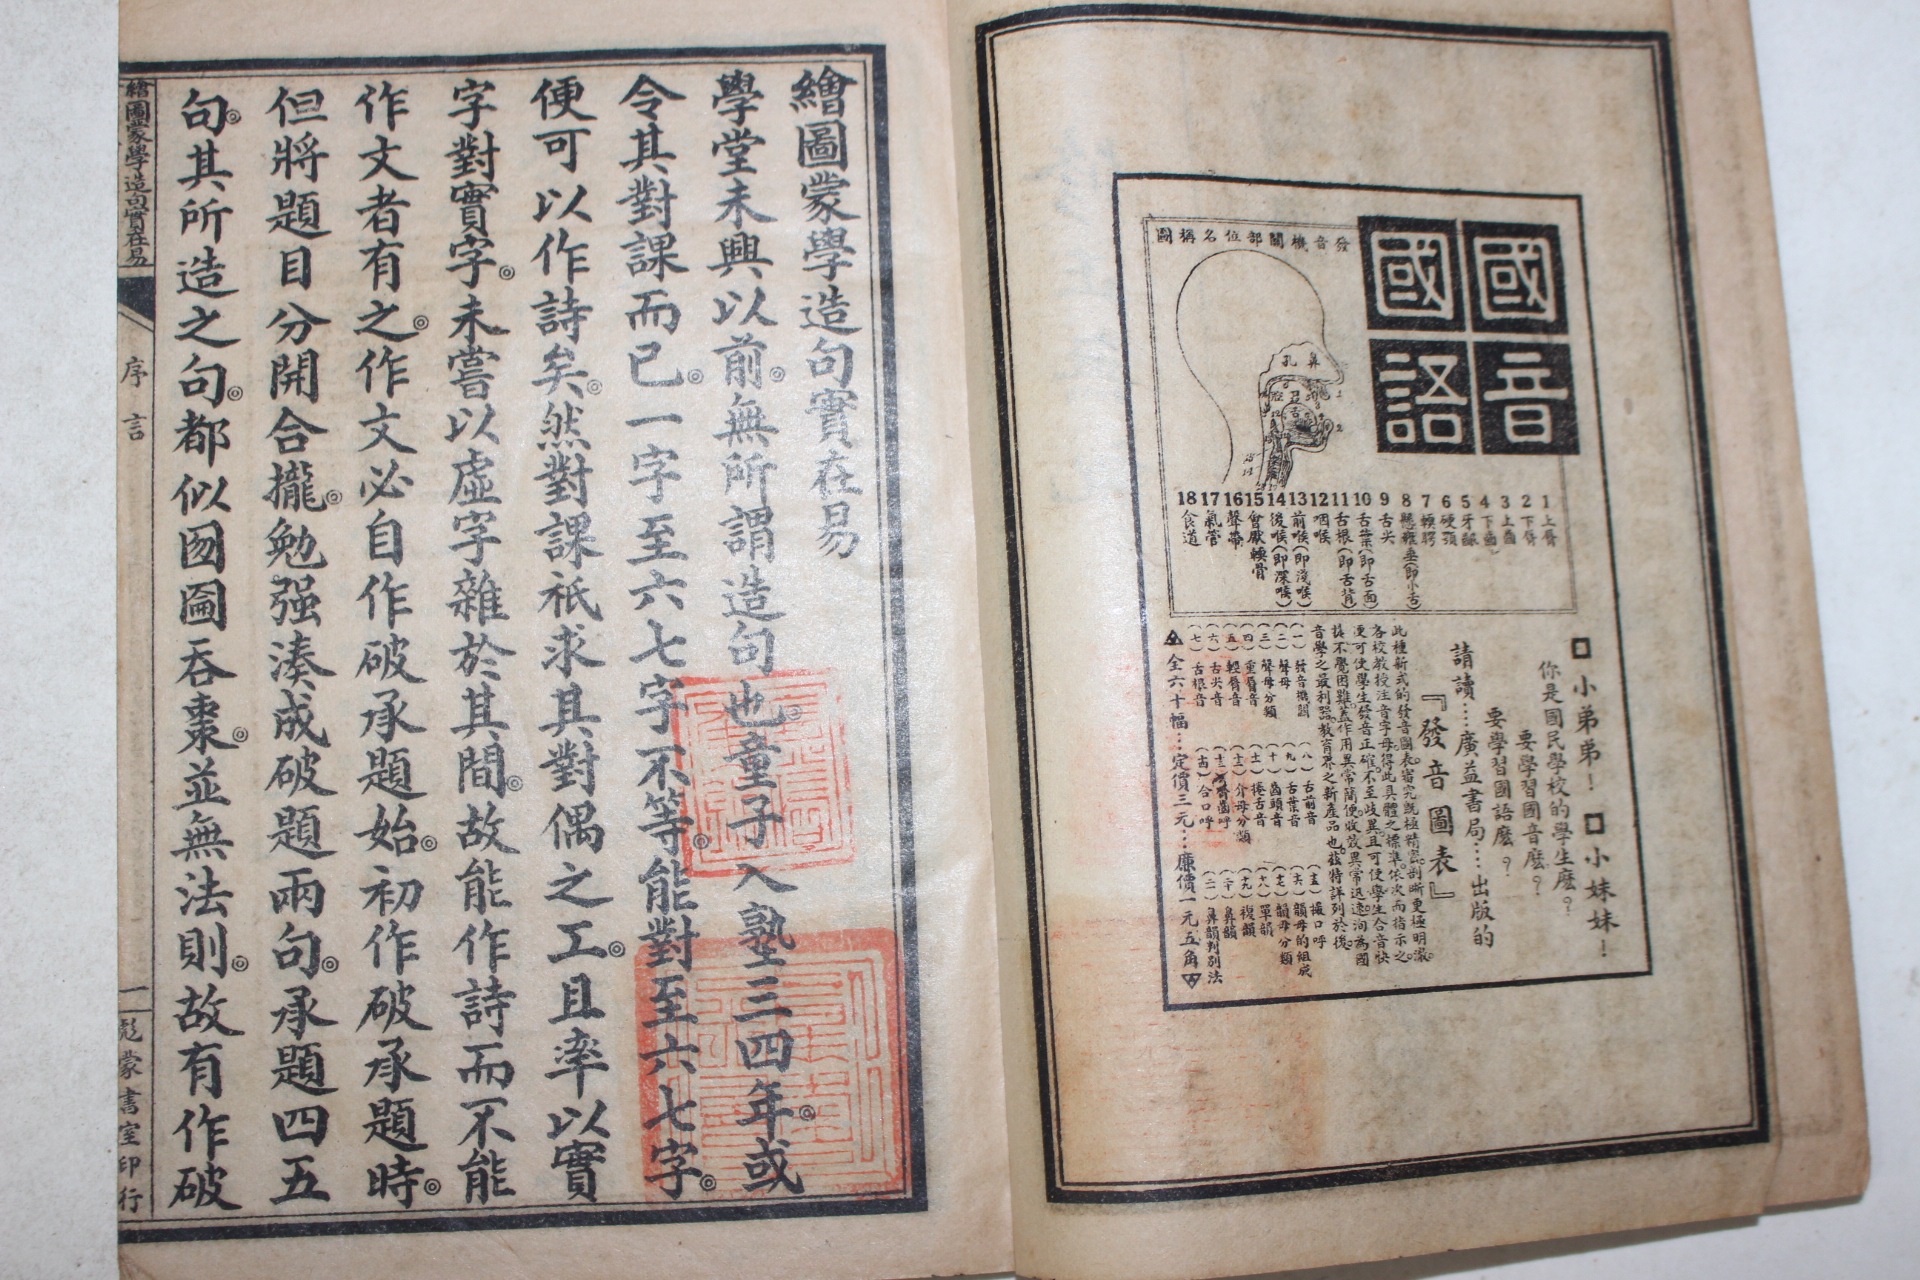 國音
國語
發音機關部位名稱圖
鼻
孔
1 上脣
2 下脣
3 上齒
4 下齒
5 牙齦
6 硬顎
7 輭腭
8 懸雍垂(即小舌)
9 舌尖
10 舌葉(即舌面)
11 舌根(即舌背)
12 咽喉
13 前喉(即淺喉)
14 後喉(即深喉)
15 會厭輭骨
16 聲帶
17 氣管
18 食道
小弟弟! 小妹妹!
你是國民學校的學生麽?
要學習國音麽?
要學習國語麽?
請讀…廣益書局…出版的
『發音圖表』
此種新式的發音圖表。審究既極精密。剖晰更極明澈。
各校教授注音字母。得此具體之標準。依次而指示之。
便可使學生發音正確。不至歧異。且可使學生合音快
捷不覺困難。蓋作用異常簡便。收效異常迅速。洵為國
音學之最利器。教育界之新產品也。茲特詳列於後。
(一)發音機關 (八)舌前音 (十五)撮口呼
(二)聲母 (九)舌葉音 (十六)韻母的組成
(三)聲母分類 (十)齒頭音 (十七)韻母分類
(四)重脣音 (十一)捲舌音 (十八)單韻
(五)輕脣音 (十二)介母分類 (十九)複韻
(六)舌尖音 (十三)齊齒呼 (二十)鼻韻
(七)舌根音 (十四)合口呼 (二一)鼻韻判別法
全六十幅…定價三元…廉價一元五角
繪圖蒙學造句實在易
學堂未興以前。無所謂造句也。童子入塾三四年。或
令其對課而已。一字至六七字不等。能對至六七字。
便可以作詩矣。然對課祇求其對偶之工。且率以實
字對實字。未嘗以虛字雜於其間。故能作詩而不能
作文者有之。作文必自作破承題始。初作破承題時。
但將題目分開合攏。勉强湊成破題兩句。承題四五
句。其所造之句。都似囫圇吞棗。並無法則。故有作破
繪圖蒙學造句實在易
序言
一
彪蒙書室印行